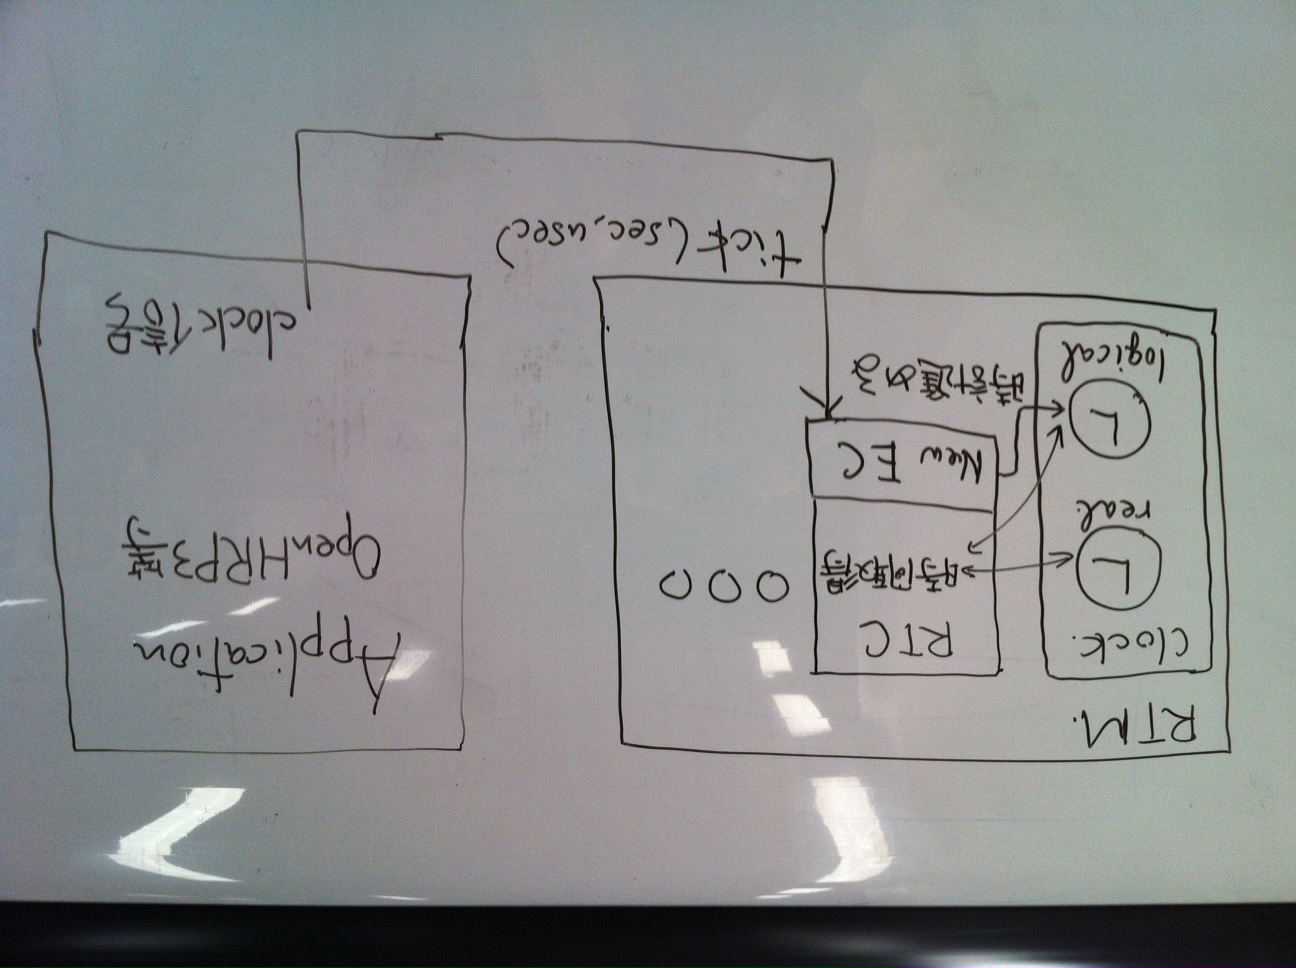 RTM.
Clock.
real
logical
RTC
時間取得
New EC
時計進める
○○○
tick (sec, usec)
Application
OpenHRP3等
clock信号